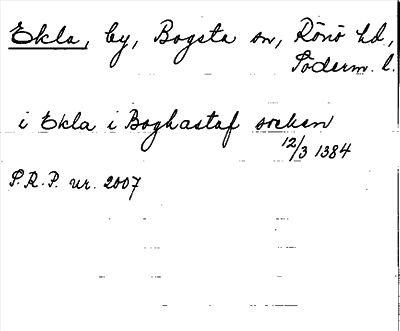 Ekla, by, Bogsta sn, Rönö hd,
Söderm. l.
i Ekla i Boghastaf socken
12/3 1384
S.R.P. nr. 2007